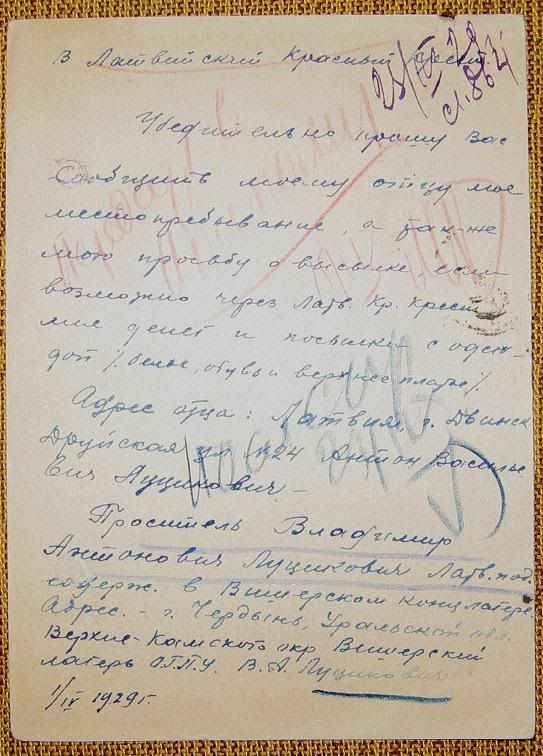 В Латвийский Красный Крест.
23/IV 29
Убедительно прошу Вас
Сообщить моему отцу мое
местопребывание, а так-же
мою просьбу о высылке если
возможно через Латв. Кр. Крест
мне денег и посылки с одеж-
дой /. белье, обувь и верхнее платье /.
Адрес отца: Латвия, г. Двинск
Друйская ул №24 Антон Василье
вич Луцикович. –
Проситель Владимир
Антонович Луцикович Латв. под.
содерж. в Вишерском концлагере
Адрес. – г. Чердынь, Уральской обл.
Верхне-Камского окр Вишерский
лагерь О.Г.П.У. В. А. Луцикович
1/IV 1929 г.